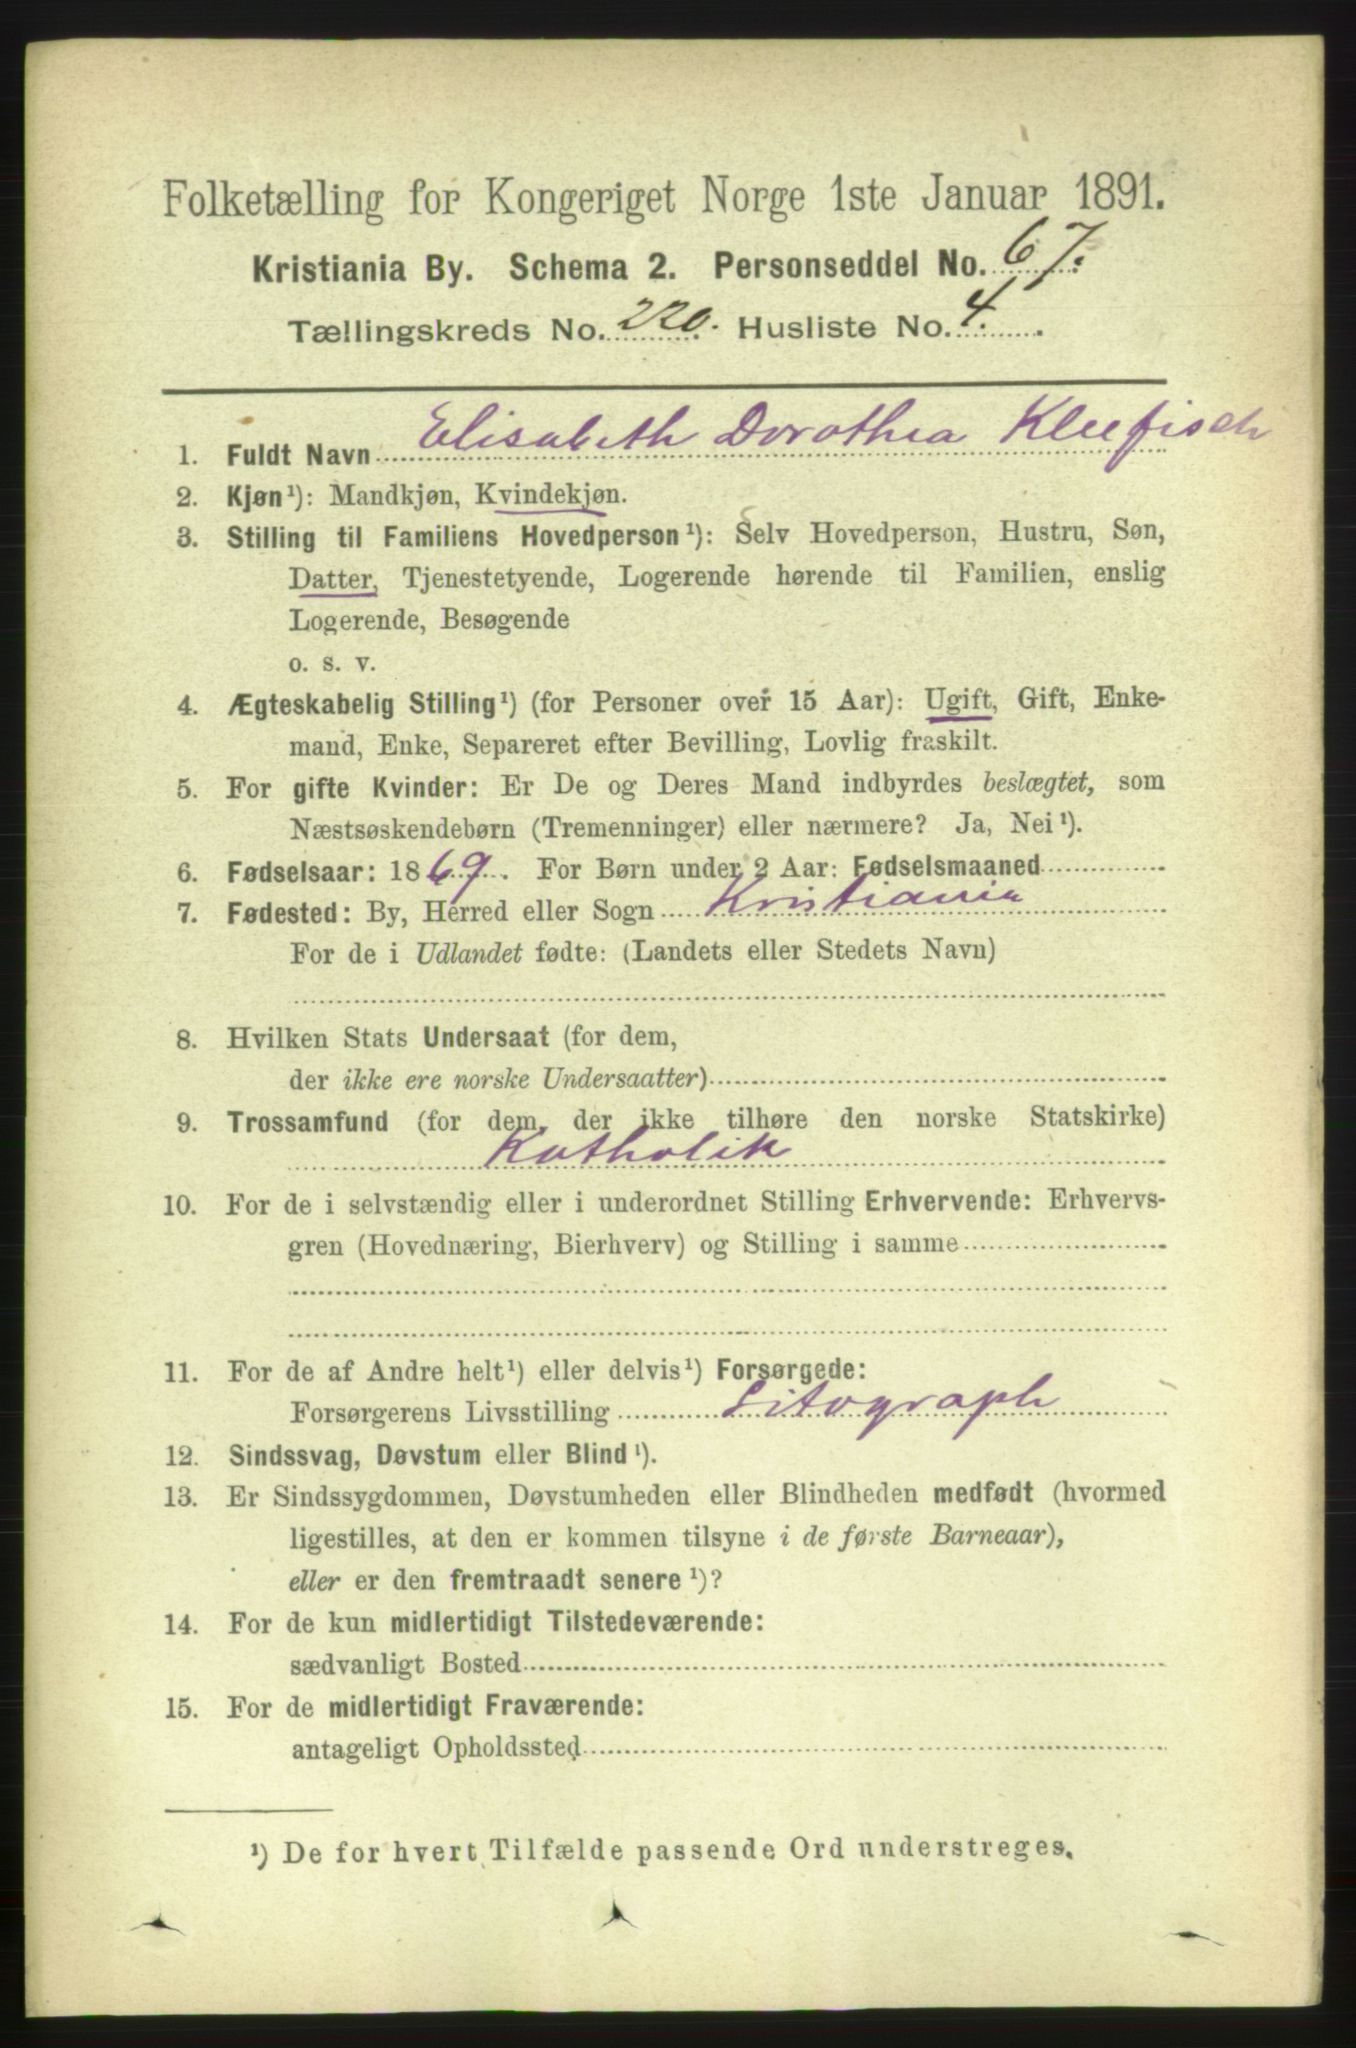 Folketælling for Kongeriget Norge 1ste Januar 1891.
Kristiania By. Schema 2. Personseddel No. 67.
Tællingskreds No. 220. Husliste No. 4.
1. Fuldt Navn Elisabeth Dorothea Kleefisch
2. Kjøn¹): Mandkjøn, Kvindekjøn.
3. Stilling til Familiens Hovedperson¹): Selv Hovedperson, Hustru, Søn,
Datter, Tjenestetyende, Logerende hørende til Familien, enslig
Logerende, Besøgende
o. s. v.
4. Ægteskabelig Stilling¹) (for Personer over 15 Aar): Ugift, Gift, Enke-
mand, Enke, Separeret efter Bevilling, Lovlig fraskilt.
5. For gifte Kvinder: Er De og Deres Mand indbyrdes beslægtet, som
Næstsøskendebørn (Tremenninger) eller nærmere? Ja, Nei¹).
6. Fødselsaar: 1869. For Børn under 2 Aar: Fødselsmaaned
7. Fødested: By, Herred eller Sogn Kristiania
For de i Udlandet fødte: (Landets eller Stedets Navn)
8. Hvilken Stats Undersaat (for dem,
der ikke ere norske Undersaatter)
9. Trossamfund (for dem, der ikke tilhøre den norske Statskirke)
Katholik
10. For de i selvstændig eller i underordnet Stilling Erhvervende: Erhvervs-
gren (Hovednæring, Bierhverv) og Stilling i samme
11. For de af Andre helt¹) eller delvis¹) Forsørgede:
Forsørgerens Livsstilling Litograph
12. Sindssvag, Døvstum eller Blind¹).
13. Er Sindssygdommen, Døvstumheden eller Blindheden medfødt (hvormed
ligestilles, at den er kommen tilsyne i de første Barneaar),
eller er den fremtraadt senere¹)?
14. For de kun midlertidigt Tilstedeværende:
sædvanligt Bosted
15. For de midlertidigt Fraværende:
antageligt Opholdssted
¹) De for hvert Tilfælde passende Ord understreges.